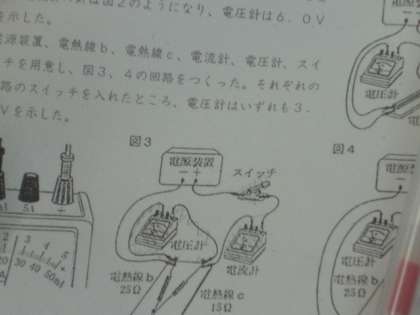 図2のようになり、電圧計は6.0V
を示した。
電源装置、電熱線b、電熱線c、電流計、電圧計、スイ
チを用意し、図3、4の回路をつくった。それぞれの
路のスイッチを入れたところ、電圧計はいずれも3.
Vを示した。
図3
電源装置
− +
スイッチ
電圧計
電流計
電熱線b
25Ω
電熱線c
15Ω
図4
電源
−
電圧計
電熱線b
25Ω
電源装置
電圧計
電
5A
+
3 4 5
30 40 50